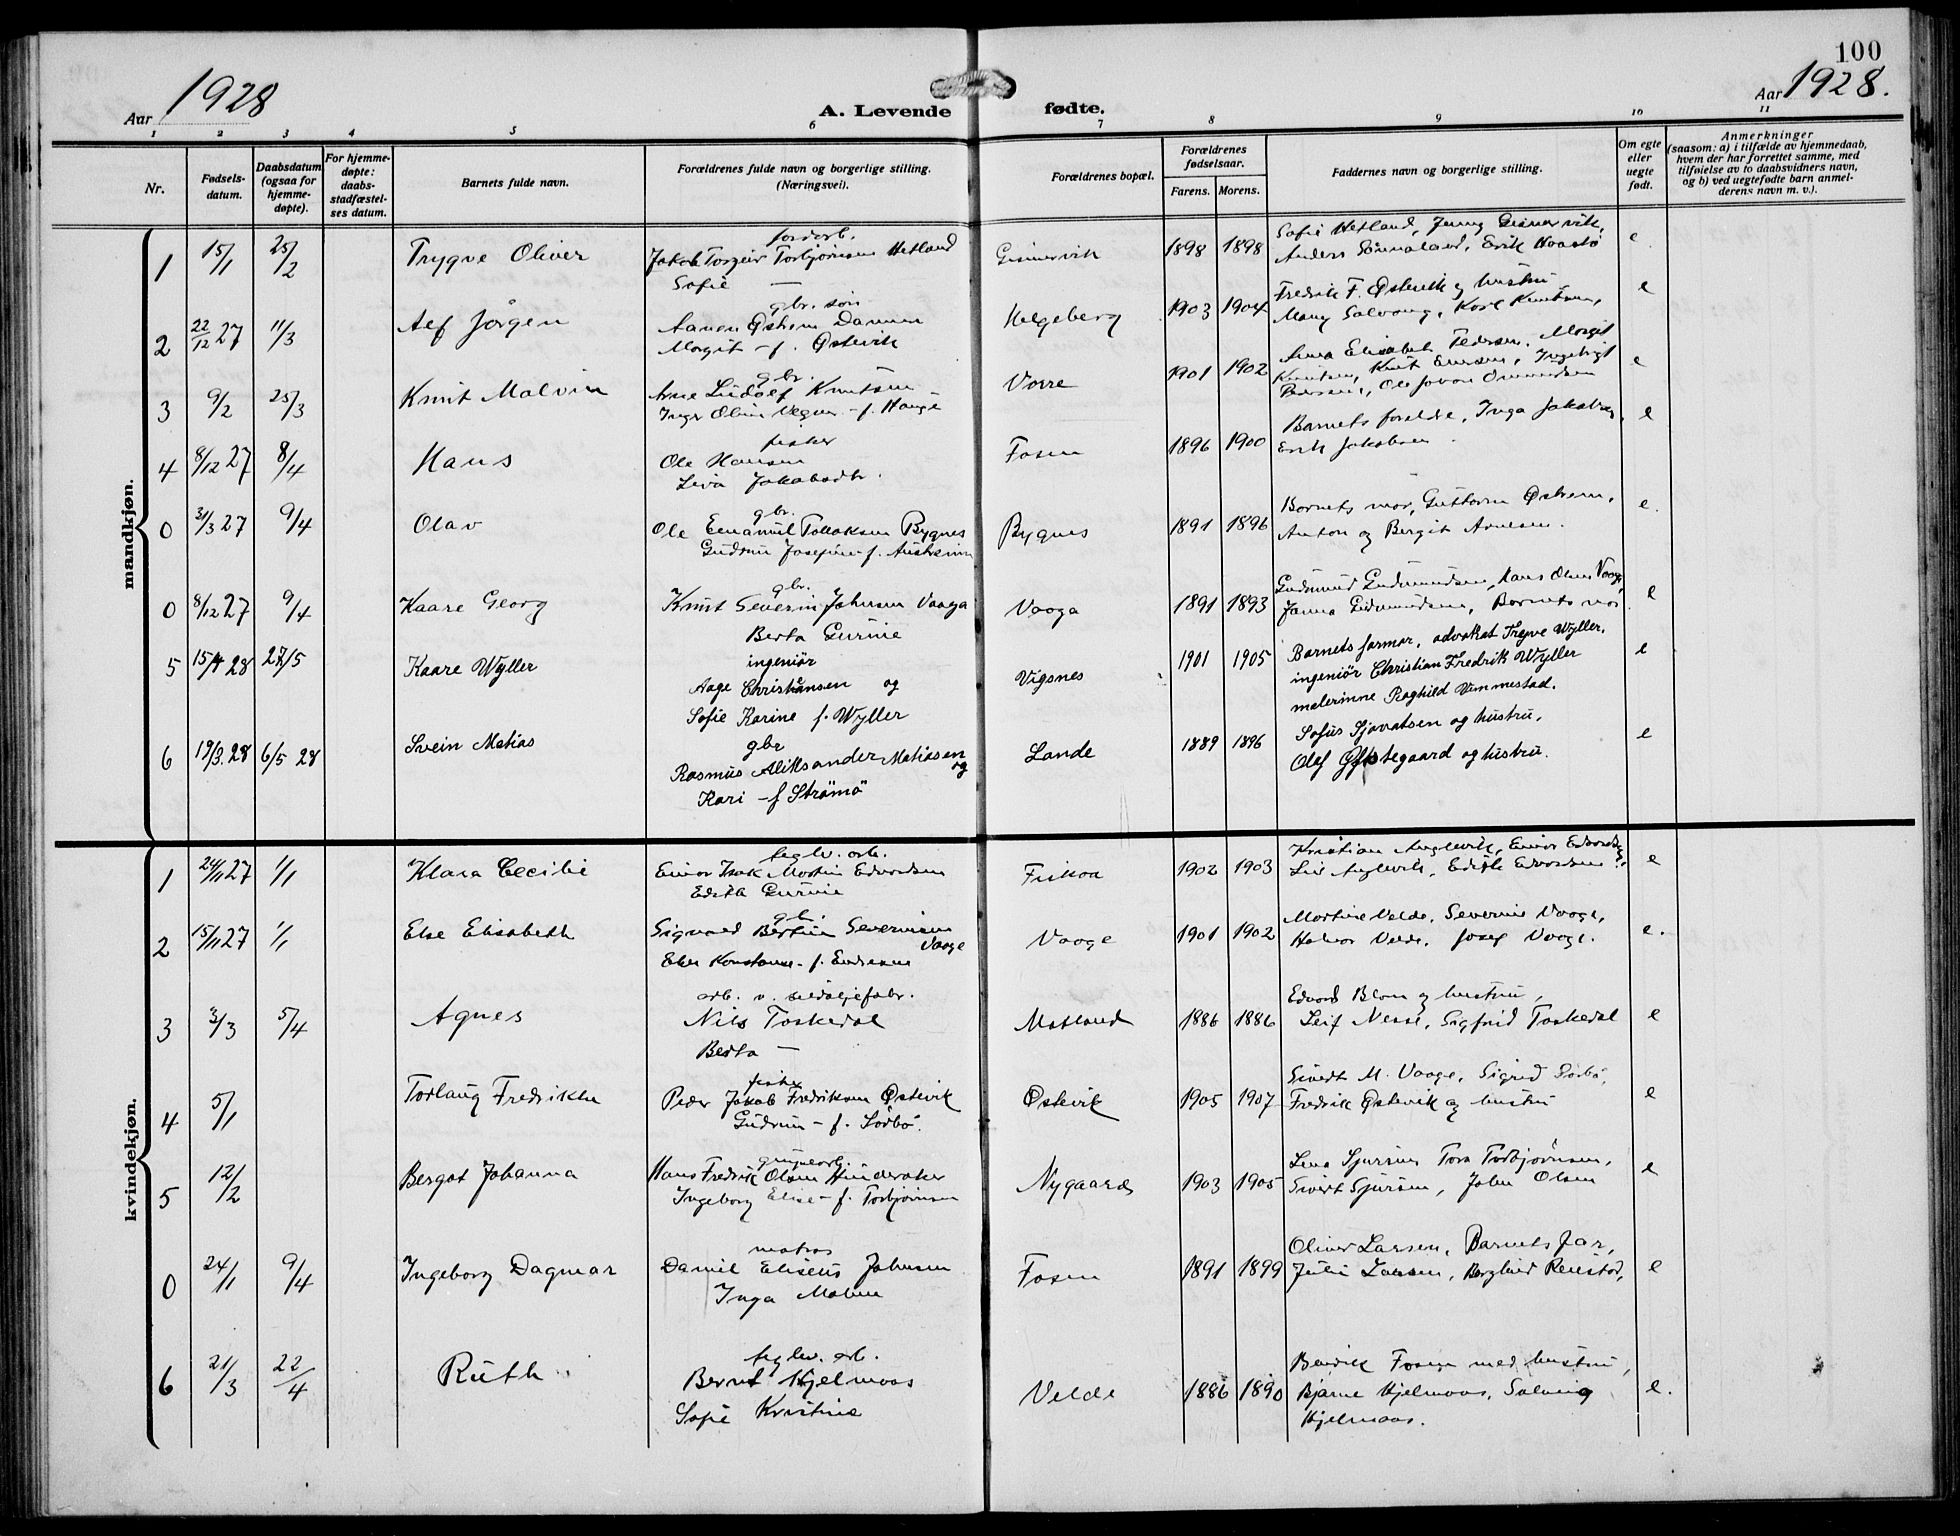 100
Aar 1928
A. Levende fødte.
Aar 1928.
1 2 3 4 5 6 7 8 9 10 11
Nr.
Fødsels-
datum.
Daabsdatum
(ogsaa for
hjemme-
døpte).
For hjemme-
døpte:
daabs-
stadfæstel-
ses datum.
Barnets fulde navn.
Forældrenes fulde navn og borgerlige stilling.
(Næringsvei).
Forældrenes bopæl.
Forældrenes
fødselsaar.
Farens. Morens.
Faddernes navn og borgerlige stilling.
Om egte
eller
uegte
født.
Anmerkninger
(saasom: a) i tilfælde av hjemmedaab,
hvem der har forrettet samme, med
tilføielse av to daabsvidners navn,
og b) ved uegtefødte barn anmel-
derens navn m. v.).
mandkjøn.
1 15/1 25/2 Trygve Oliver
Jakob Torgeir Torbjørnsen Hetland
Sofie —
1898 1898
Sofie Hetland, Jenny
Anders Erik
e
2 22/12 27 11/3 Alf Jørgen
gbr. søn
Margit - f. Østevik
Helgeberg 1903 1904
Fredrik F. Østevik og hustru
Karl Knutsen,
e
3 9/2 25/3 Knut Malvin
gbr.
Arne Ludolf Knutsen
- f. Hauge
Vorre 1901 1902
Anna Elisabet Pedersen, Margit
Knutsen, Knut Ingebrigt
Pedersen, Ole Johan
e
4 8/12 27 8/4 Hans
fisker
Ole Hansen
Liva Jakobsdtr.
Fosen 1896 1900
Barnets forældre, Inga Jakobsen,
Erik Jakobsen.
e
0 31/3 27 9/4 Olav
gbr.
Ole Emanuel Tollaksen Bygnes
Gudrun Josefine - f.
Bygnes 1891 1896
Barnets mor, Guttorm Østrem,
Anton og Bergit Arnesen.
e.
0 8/12 27 9/4 Kaare Georg
gbr.
Knut Severin Johnsen Vaaga
Berta Gurine
Vaaga 1891 1893
Gudmund Gudmundsen, Hans Olsen Vaage,
Janna Gudmundsen, Barnets mor.
e
5 15/4 28 27/5 Kaare Wyller
ingeniør
Aage Christiansen og
Sofie Karine f. Wyller
Vigsnes 1901 1905
Barnets farmor, advokat Trygve Wyller,
ingeniør Christian Fredrik Wyller
malerinne Raghild Vemmestad.
e
6 19/3 28 6/5 28 Svein Matias
gbr
Rasmus Aliksander Matiasen og
Kari - f Strømø
Lande 1889 1896
Sofus Sjovatsen og hustru,
Olaf og hustru.
e
kvindekjøn.
1 24/11 27 1/1 Klara Cecilie
teglv. arb.
Einar Isak Martin Edvardsen
Edith Gurine
Fiskaa 1902 1903
Kristian Anglevik, Einar
Liv Anglevik, Edith Edvardsen
e
2 15/11 27 1/1 Else Elisabeth
gbr.
Sigvald Bertin Severinsen
Vaage
Vaage 1901 1902
Martine Velde, Severine Vaage,
Halvor Velde, Josef Vaage.
e.
3 3/3 5/4 Agnes
arb. v. sildoljefabr.
Nils Toskedal
Berta —
Matland 1886 1886
Edvard Blom og hustru,
Leif Nesse, Sigfrid Toskedal
e
4 5/1 Torlaug Fredrikke
fisker
Peder Jakob Fredriksen Østevik
Gudrun - f. Sørbø.
Østevik 1905 1907
Sivert M. Vaage, Sigrid Sørbø,
Fredrik Østevik og hustru
e
5 12/2 Bergot Johanna
grubearb.
Hans Fredrik Olsen Hinderaker
Ingeborg Elise - f. Torbjørnsen
Nygaard 1903 1905
Lina Sjursen Tora Torbjørnsen,
Sivert Sjursen, John Olsen
e
0 24/1 9/4 Ingeborg Dagmar
matros
Daniel Eliseus Johnsen
Inga Maline
Fosen 1891 1899
Oliver Larsen, Barnets far,
Julie Larsen,
e
6 21/3 22/4 Ruth
teglv. arb.
Bernt Hjelmaas
Sofie Kristine
Velde 1886 1890
Bendik Fosen med hustru,
Bjarne Hjelmaas, Solveig
Hjelmaas.
e.